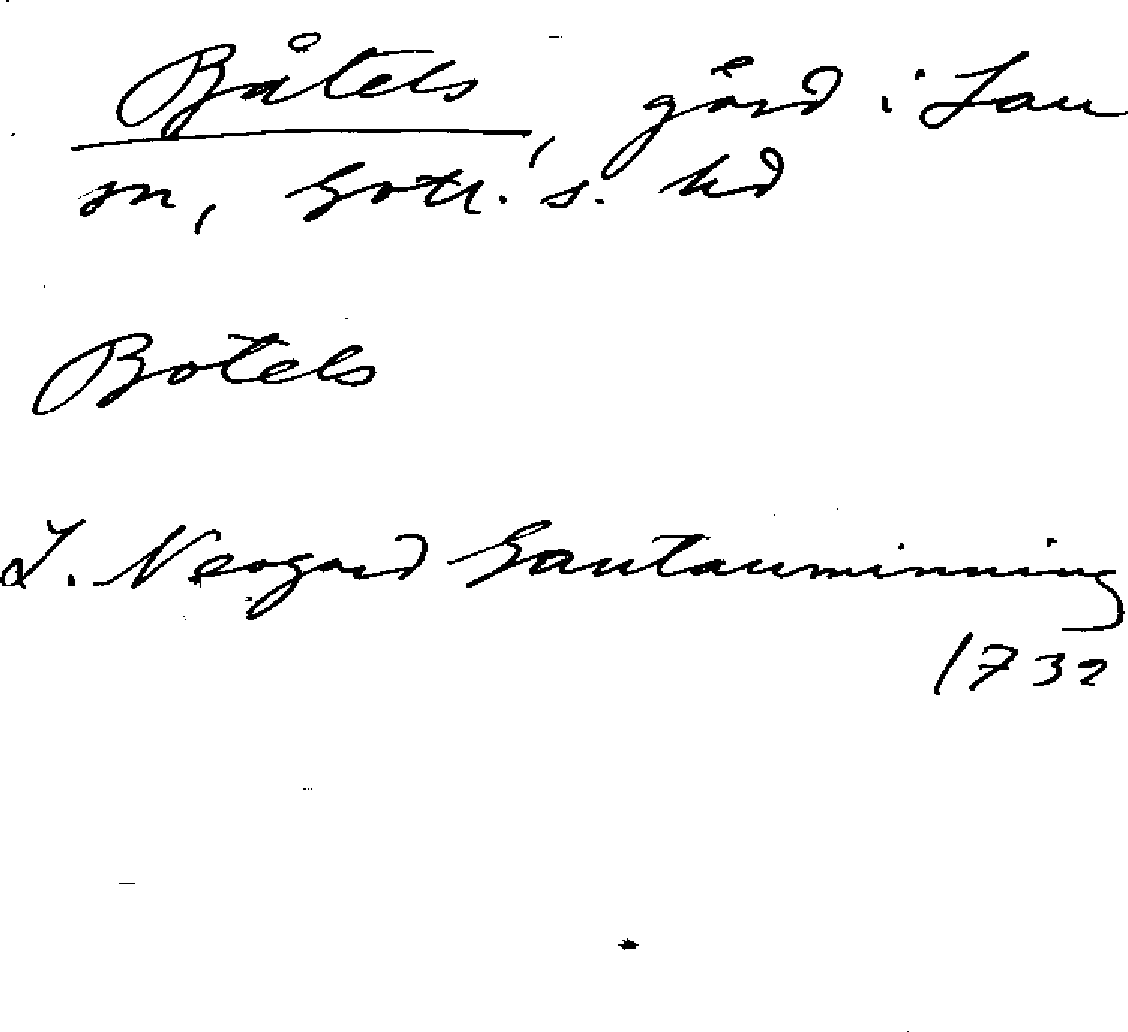 Båtels, gård i Lau
sn, Gotl. s. hd
Botels
L. Neogard Gautauminning
1732